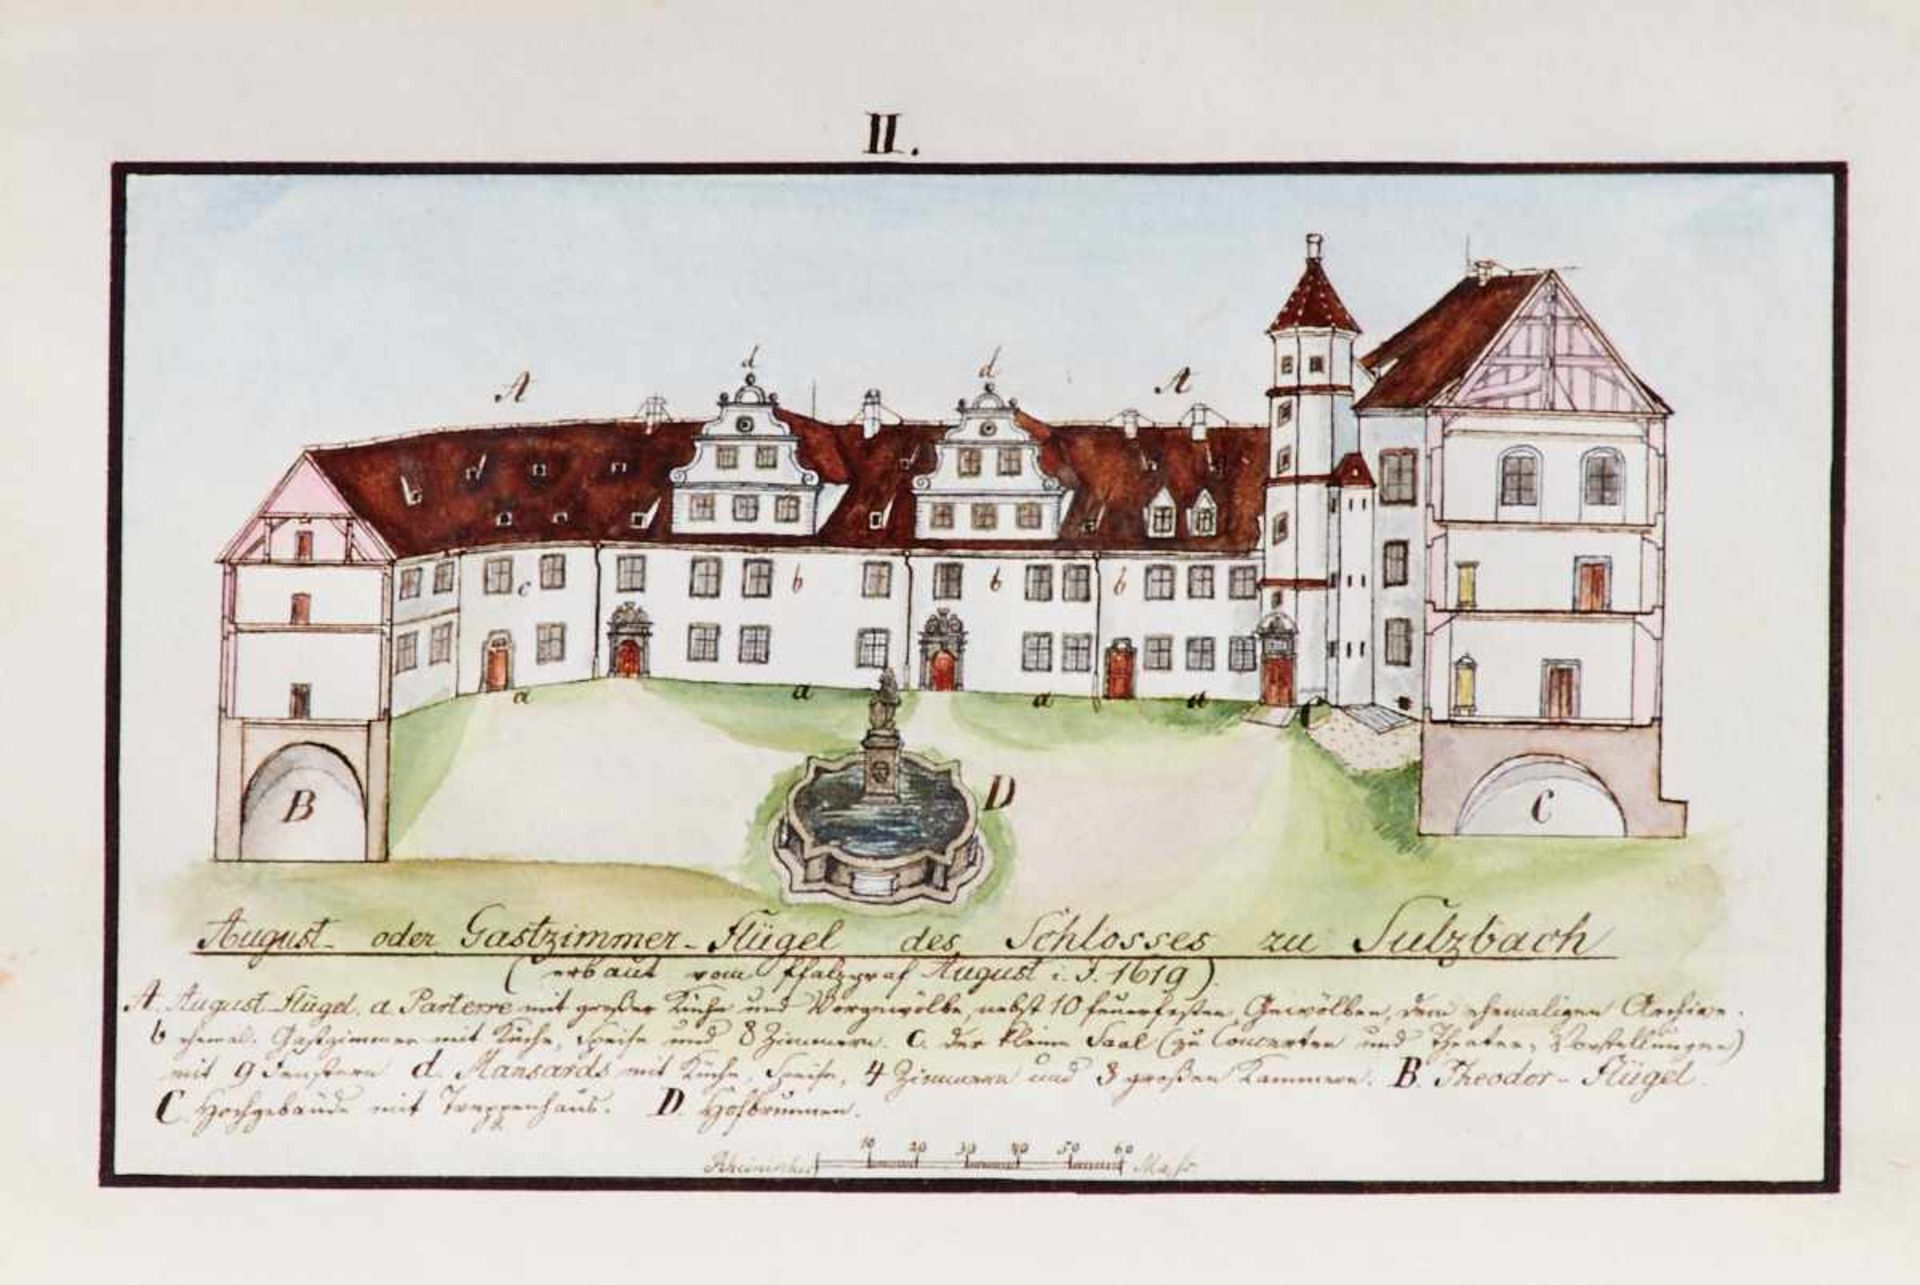 II.
d
d
A
A
c
b
b
b
a
a
a
a
D
B
C
August- oder Gastzimmer-Flügel des Schlosses zu Sulzbach
(erbaut vom Pfalzgraf August i. J. 1619)
A. August-Flügel. a Parterre mit großer Küche und Vorgewölbe, nebst 10 feuerfesten Gewölben, dem ehemaligen Archive.
b ehemal. Gastzimmer mit Küche, Speise und 8 Zimmern. c. der kleine Saal (zu Concerten und Theater-Vorstellungen)
mit 9 Fenstern d. Mansards mit Küche, Speise, 4 Zimmern und 3 großen Kammern. B. Theodor-Flügel.
C. Hochgebäude mit Treppenhaus. D. Hofbrunnen.
10 20 30 40 50 60
Rheinisches Maß.